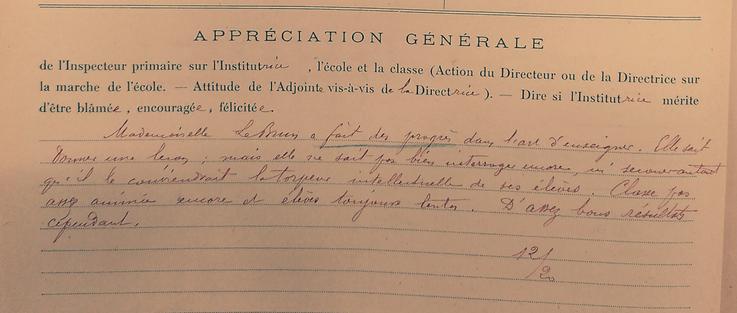 APPRÉCIATION GÉNÉRALE
de l'Inspecteur primaire sur l'Institutrice , l'école et la classe (Action du Directeur ou de la Directrice sur
la marche de l'école. — Attitude de l'Adjointe vis-à-vis de la Directrice ). — Dire si l'Institutrice mérite
d'être blâmée, encouragée, félicitée.
Mademoiselle LeBrun a fait des progrès dans l'art d'enseigner. Elle sait
donner une leçon ; mais elle ne sait pas bien interroger encore, ni secouer autant
qu'il le conviendrait la torpeur intellectuelle de ses élèves. Classe pas
assez animée encore et élèves toujours lentes. D'assez bons résultats
cependant.
12/
/20